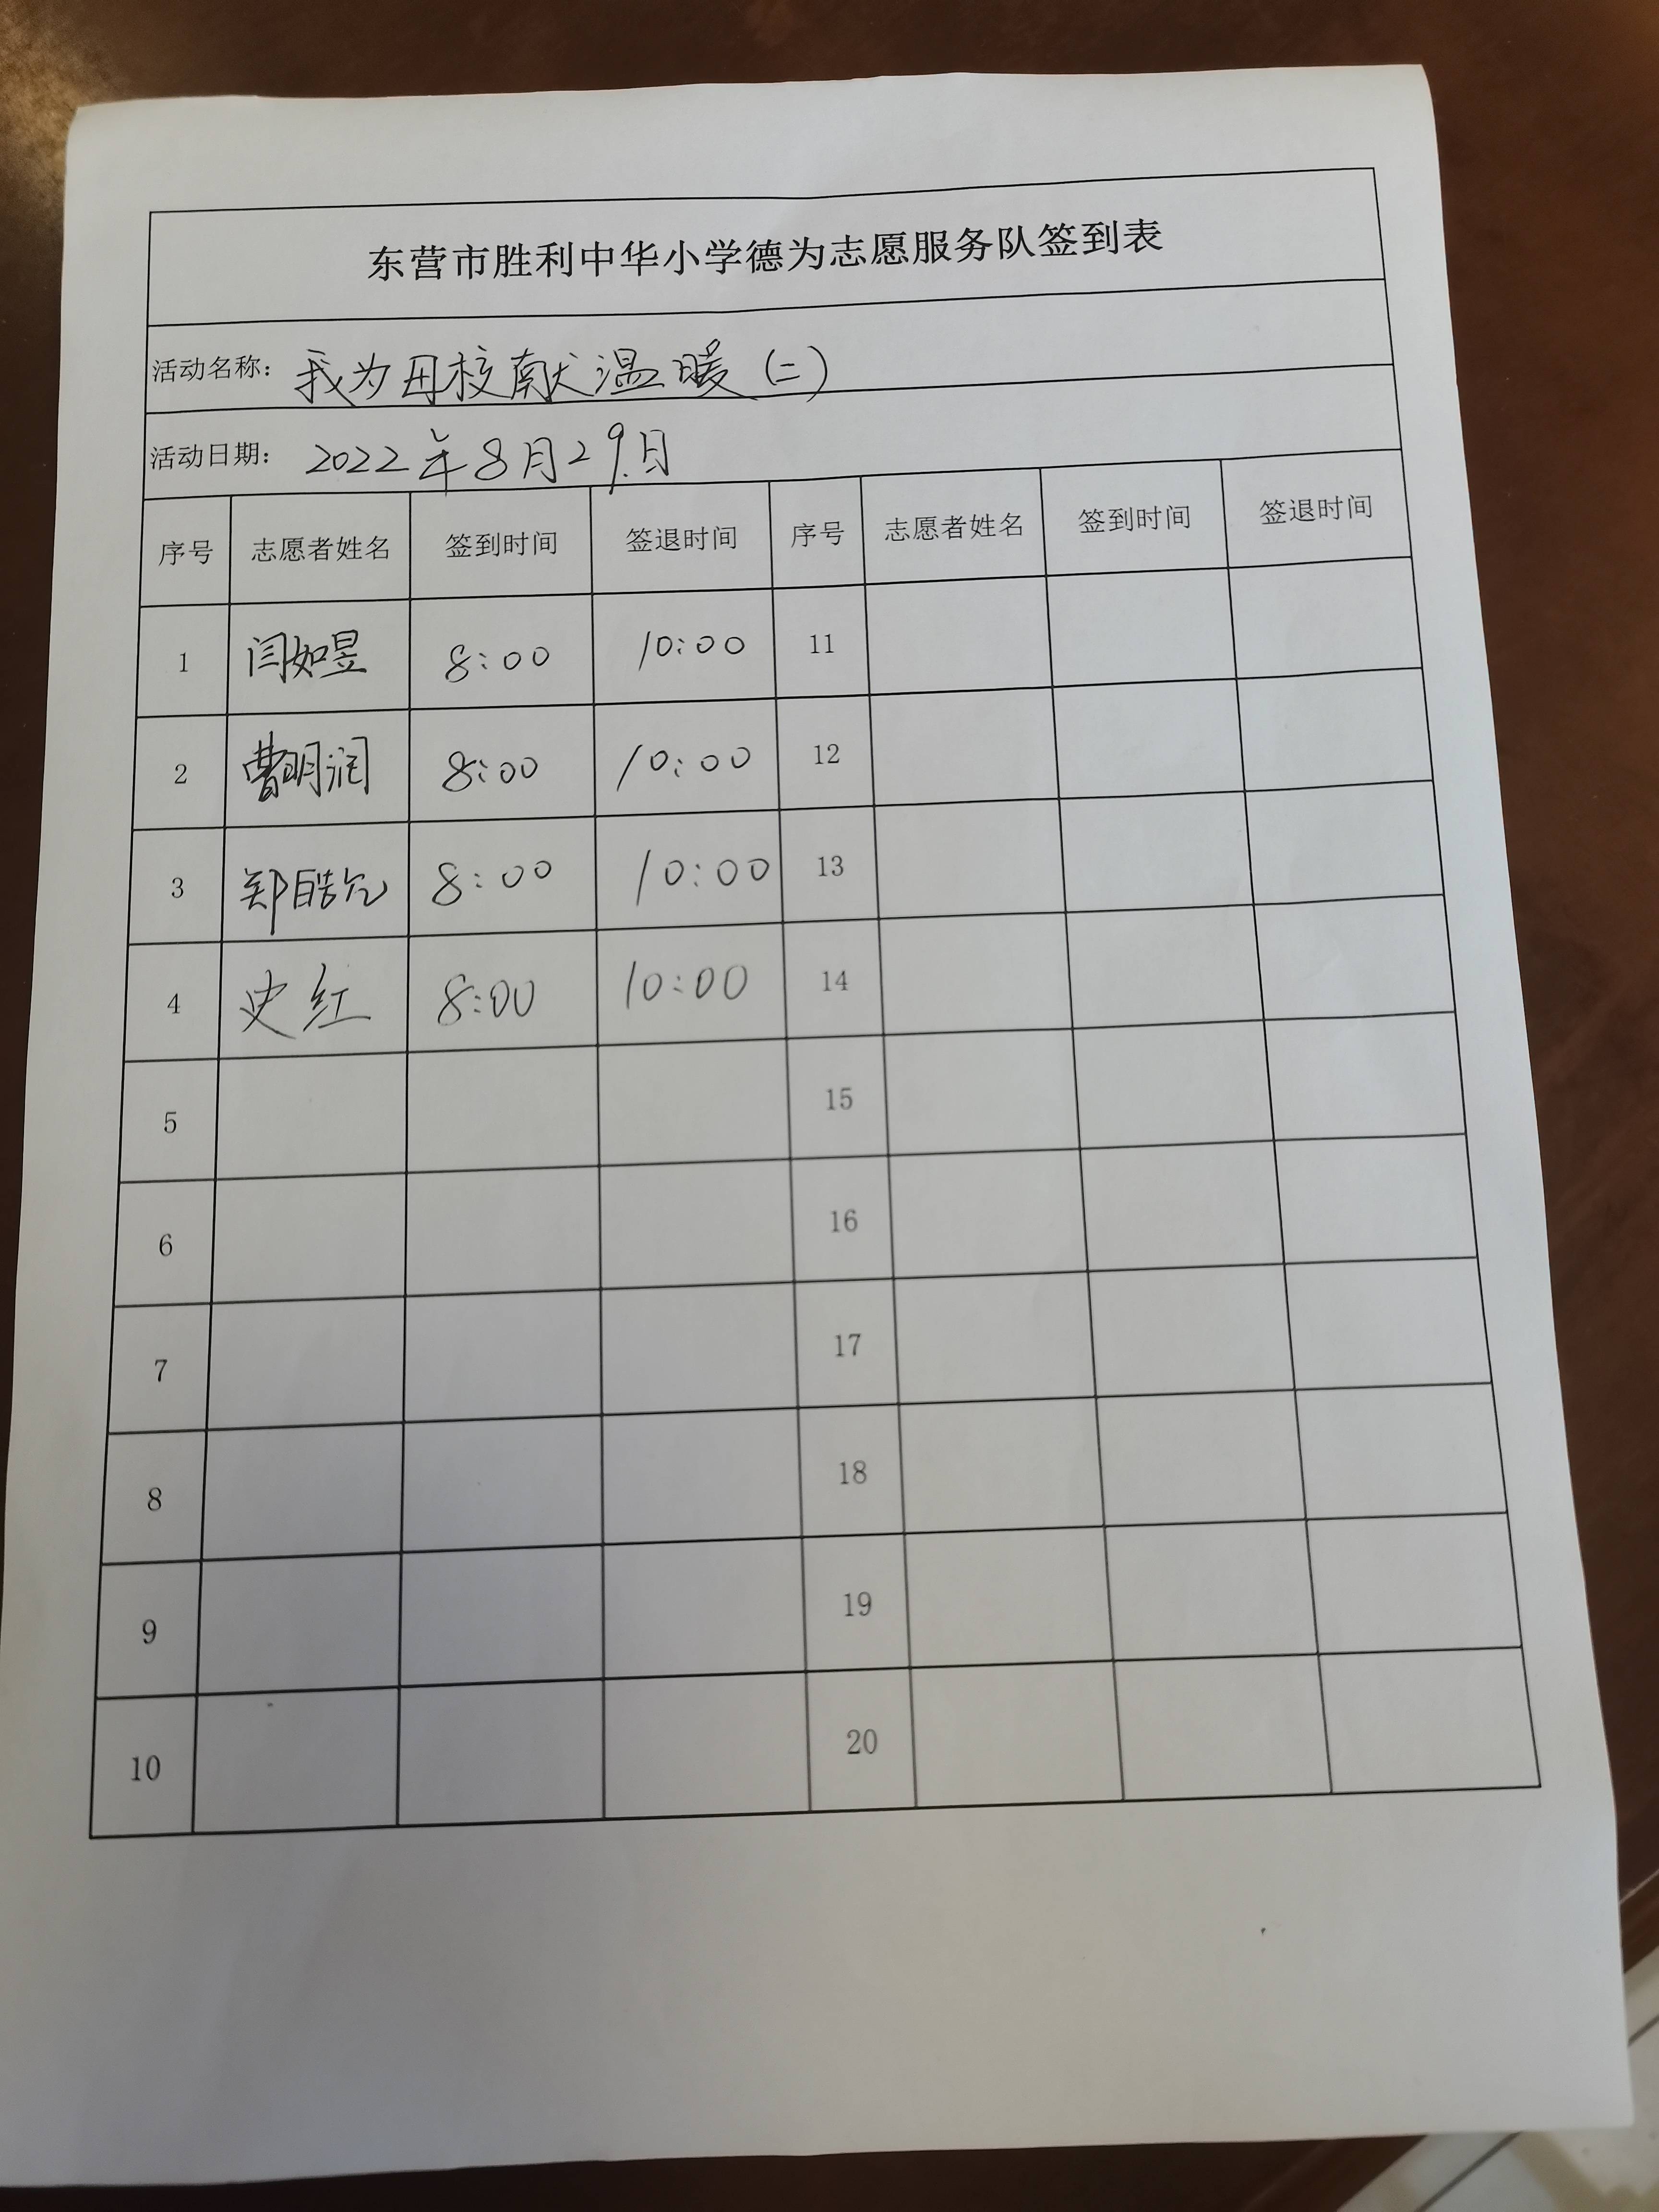 东营市胜利中华小学德为志愿服务队签到表
活动名称：我为母校献温暖（二）
活动日期：2022年8月29日
序号 志愿者姓名 签到时间 签退时间 序号 志愿者姓名 签到时间 签退时间
1 闫如昱 8:00 10:00 11
2 曹明润 8:00 10:00 12
3 郑皓允 8:00 10:00 13
4 史红 8:00 10:00 14
5 15
6 16
7 17
8 18
9 19
10 20